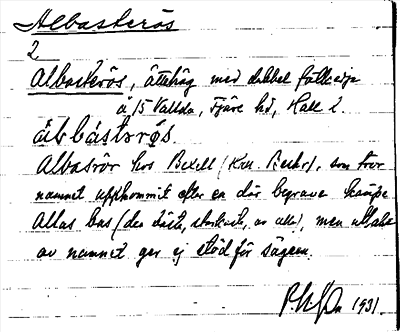 Albasterös
2
Albasterös, ättehög med dubbel fotkedja
å 15 Vallda, Fjäre hd, Hall l.
àbbàstərø̀s.
Albasrör hos Bexell (Hall. Beskr.), som tror
namnet uppkommit efter en där begraven kämpe
Allas bas (den bäste, starkaste, av alla), men uttalet
av namnet ger ej stöd för sägnen.
1931.